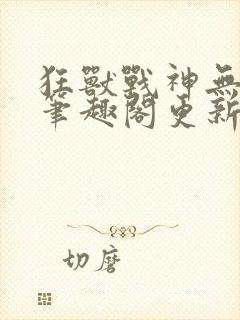 狂獸戰神無
筆趣閣更新
切磨